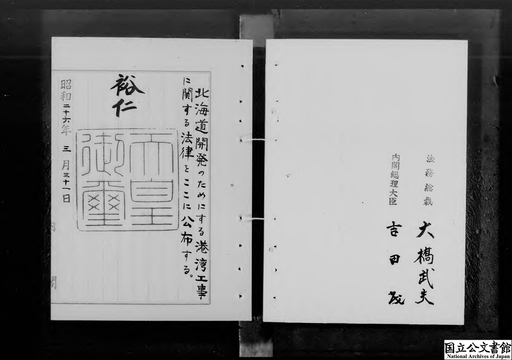 北海道開発のためにする港湾工事
に関する法律をここに公布する。
裕仁
天皇
御璽
昭和二十六年 三月三十一日
内閣
法務総裁 大橋武夫
内閣総理大臣 吉田茂
国立公文書館
National Archives of Japan